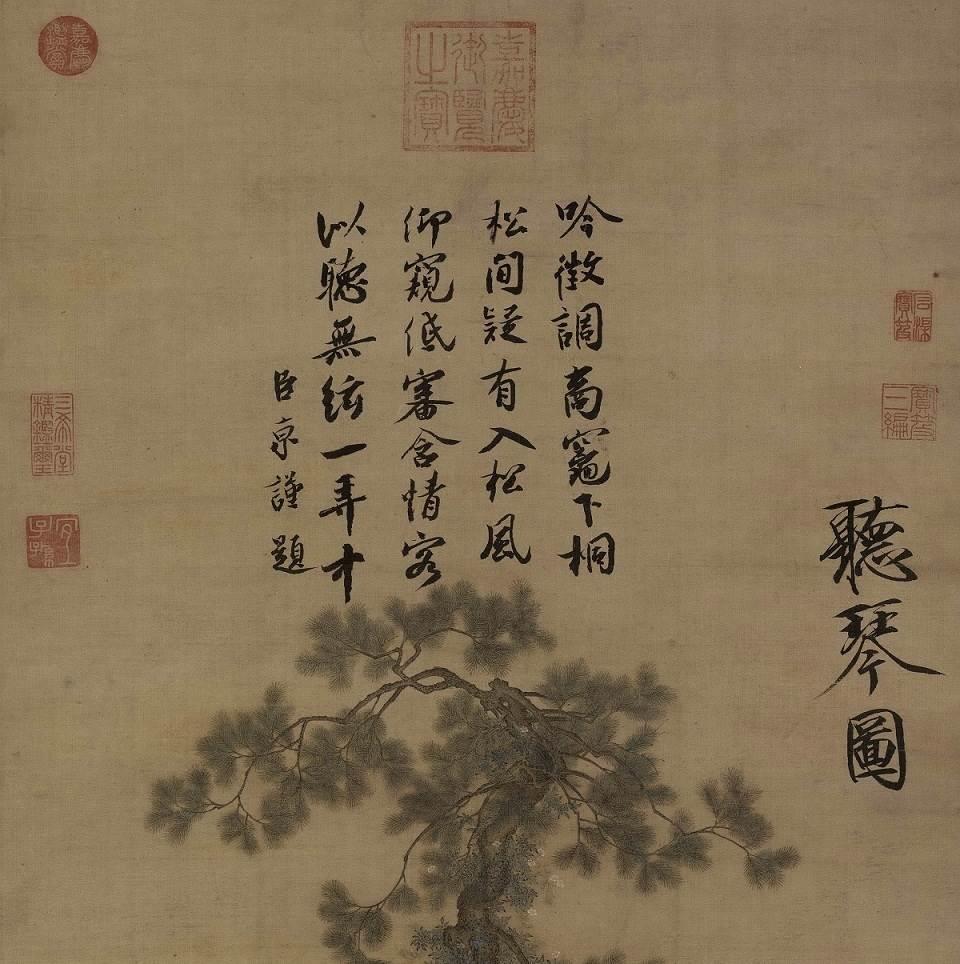 聽琴圖
吟徵調商竈下桐
松間疑有入松風
仰窺低審含情客
以聽無絃一弄中
臣京謹題
嘉慶御覽之寶
嘉慶鑑賞
石渠寶笈
寶笈三編
三希堂精鑑璽
宜子孫